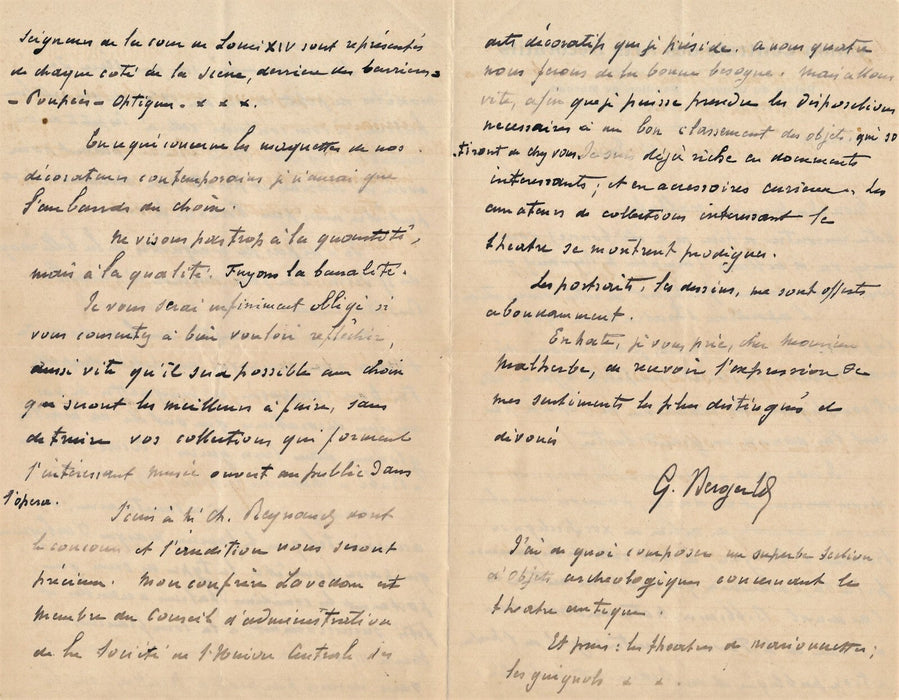 Seigneurs de la cour de Louis XIV sont représentés
de chaque coté de la scène, derrière des barrières
– Poupées – Optiques – x x x.
En ce qui concerne les maquettes de nos
décorateurs contemporains je n'aurai que
l'embarras du choix.
Ne visons pas trop à la quantité,
mais à la qualité. Fuyons la banalité.
Je vous serai infiniment obligé si
vous consentez à bien vouloir réfléchir,
aussi vite qu'il sera possible aux choix
qui seront les meilleurs à faire, sans
détruire vos collections qui forment
l'intéressant musée ouvert au public dans
l'opera.
J'écris à Mr Ch. dont
le concours et l'érudition vous seront
précieux. Mon confrère Lavedan est
membre du Conseil d'administration
de la Société de l'Union Centrale des
arts décoratifs que je préside. a nous quatre
nous ferons de la bonne besogne. Mais allons
vite, afin que je puisse prendre les dispositions
necessaires à un bon classement des objets, qui so
rtiront de chez vous. Je suis déjà riche en documents
interessants; et en accessoires curieux. Les
amateurs de collections interessant le
théatre se montrent prodigues.
Les portraits, les dessins, me sont offerts
abondamment.
En hate, je vous prie, cher monsieur
Malherbe, de recevoir l'expression de
mes sentiments les plus distingués et
dévoués
G. Berger
J'ai de quoi composer une superbe section
d'objets archeologiques concernant le
théatre antique.
Et puis: les théatres de marionnettes;
les guignols x x .